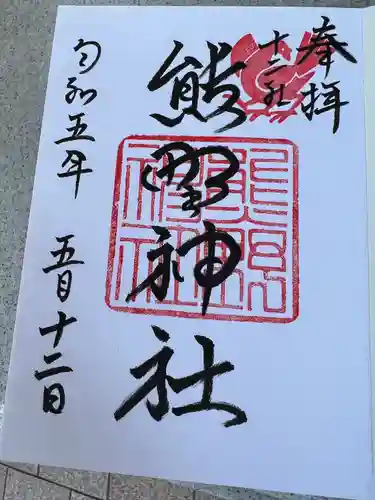 奉拝
十二社
熊野神社
令和五年 五月十二日
熊野
神社